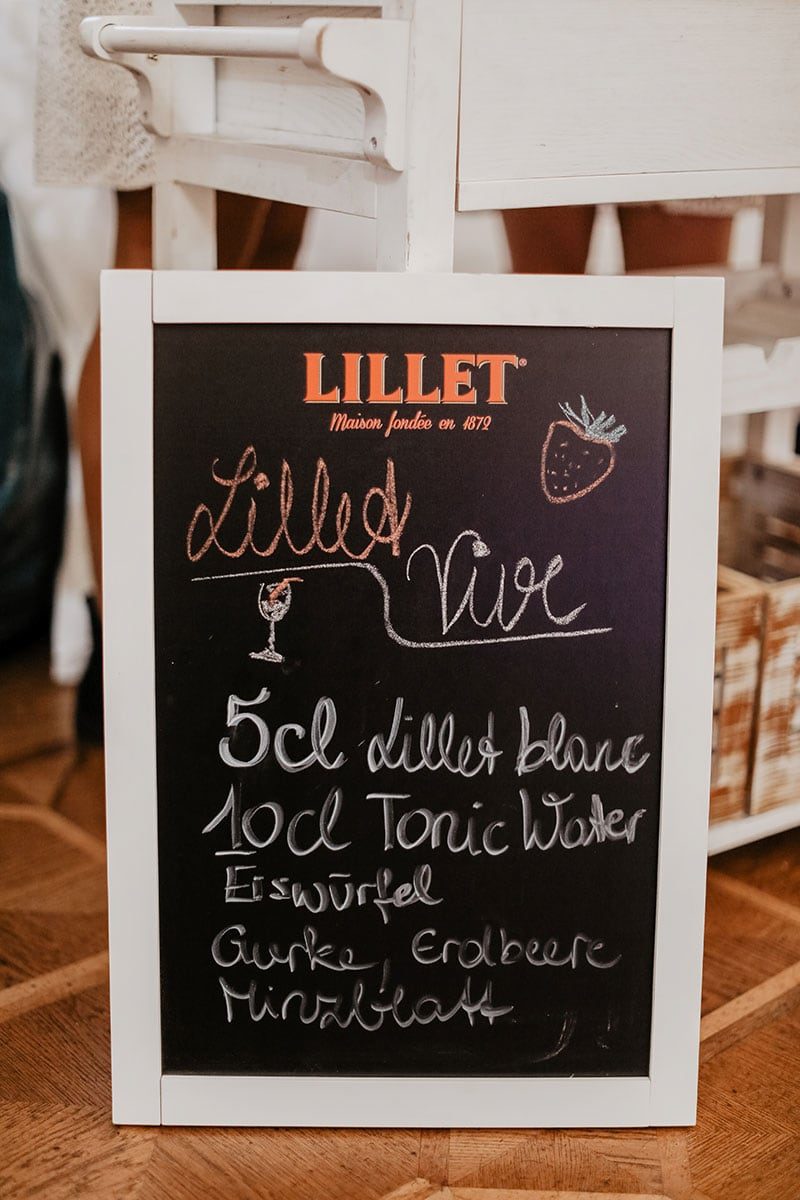 LILLET®
Maison fondée en 1872
Lillet
Vive
5cl Lillet blanc
10cl Tonic Water
Eiswürfel
Gurke, Erdbeere
Minzblatt